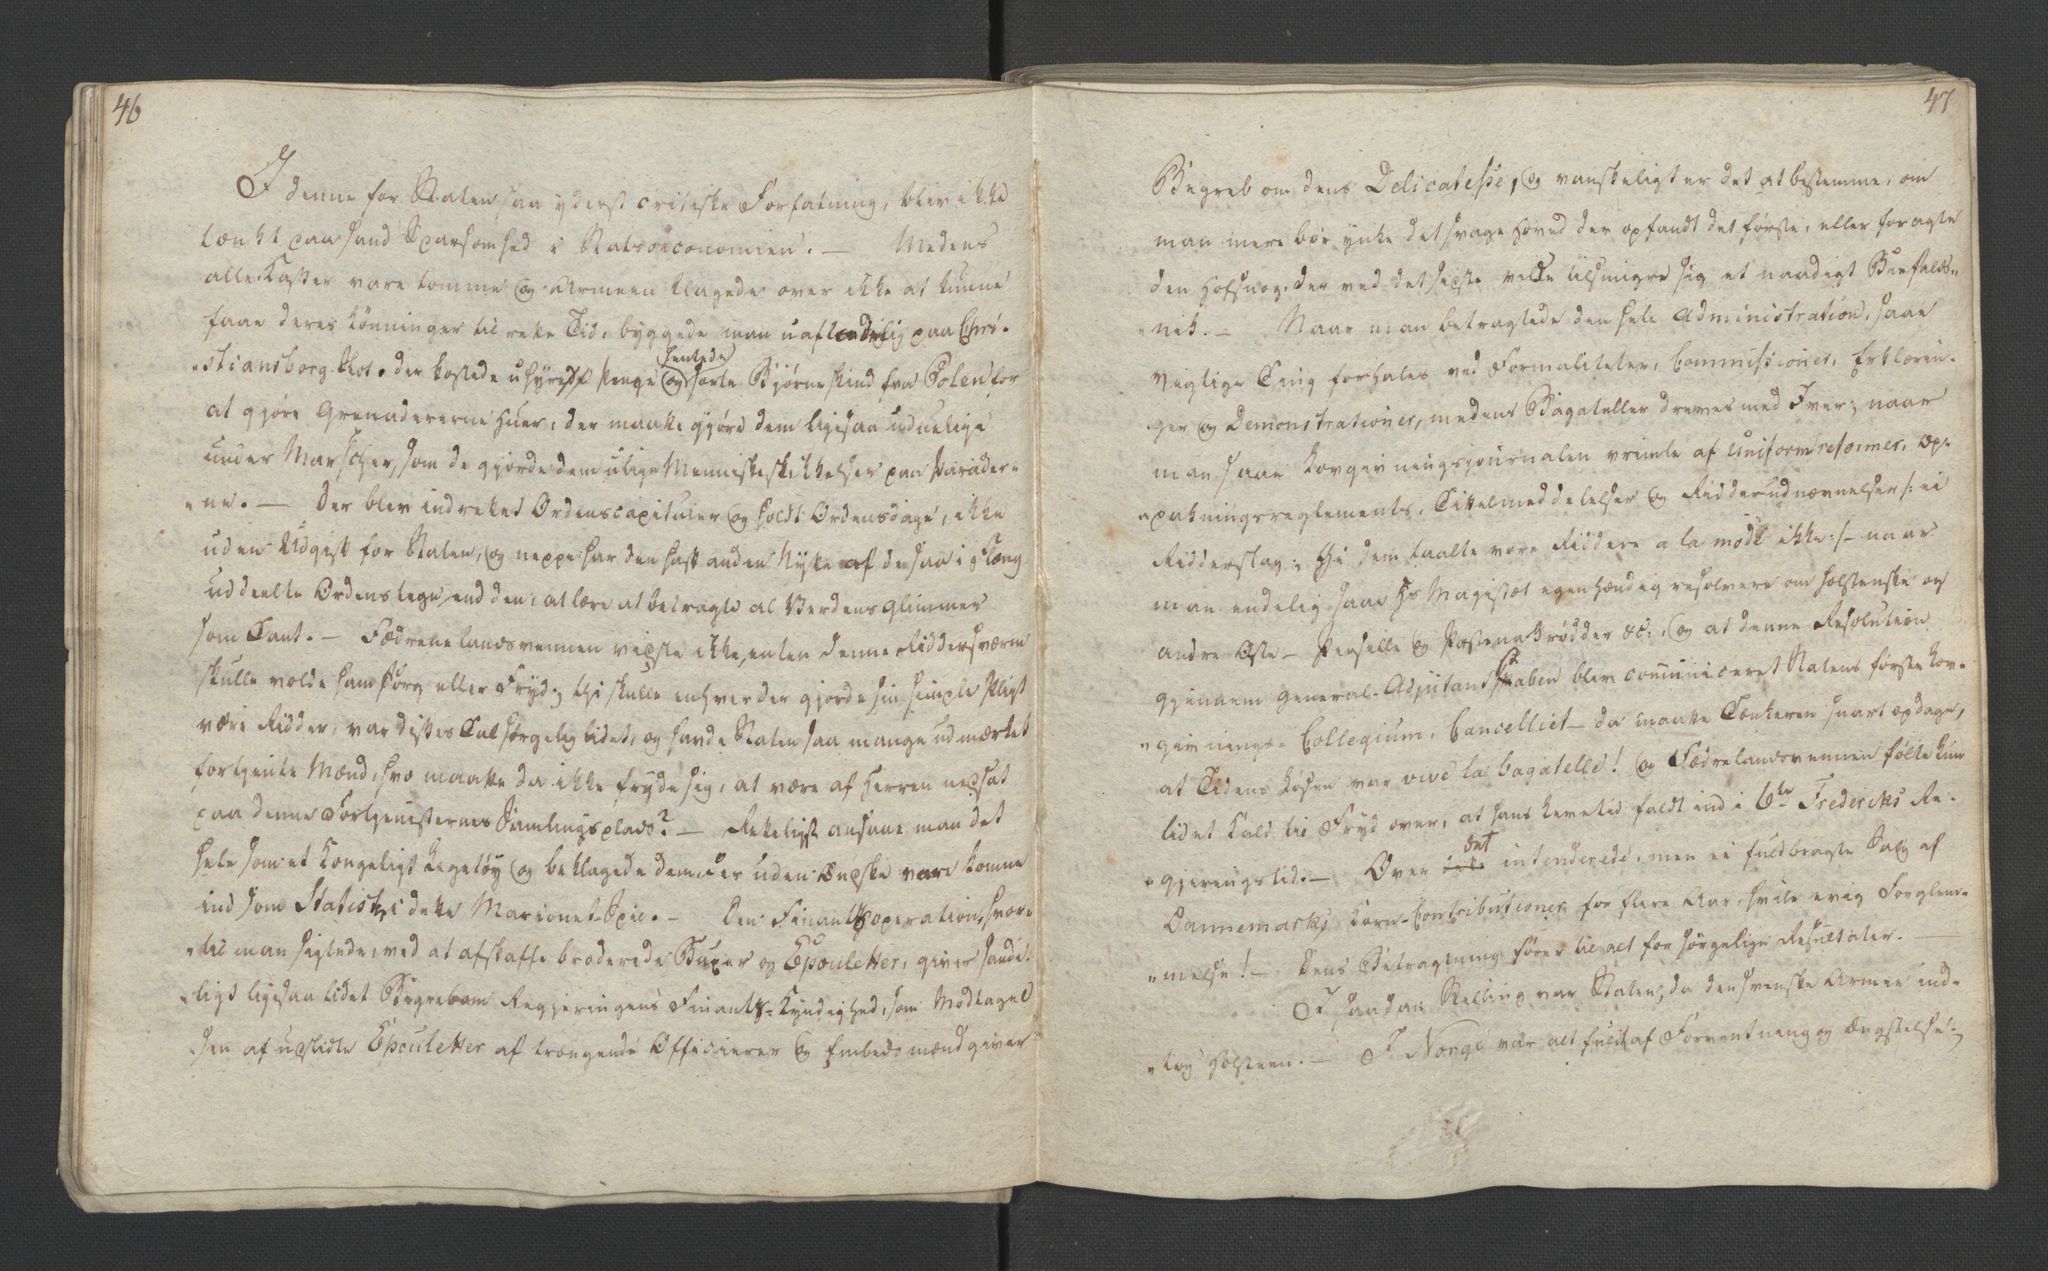 46
I denne for Staten saa yderst critiske Forfatning, blev ikke
tænkt paa sand Sparsomhed i Statsoeconomien. — Medens
alle Casser vare tomme og Armeen klagede over ikke at kunne
faae deres Lönninger til rette Tid, byggede man uafladelig paa Chri-
stiansborg-Slot, der kostede uhyre Penge og hentede sorte Bjørneskind fra Polen for
at gjøre Grenadererne Huer, der maatte gjöre dem ligesaa uduelige
under Marscher, som de gjorde dem ulige Menneskeskikkelser paa Parader-
ne. — Der blev indrettet Ordenscapituler og holdt Ordensdage, ikke
uden Udgift for Staten, og neppe har den havt anden Nytte af de saa i Flæng
uddeelte Ordenstegn, end den: at lære at betragte al Verdens glimmer
som Tant. — Fædrenelandsvennen vidste ikke, enten denne Riddersværm
skulle volde ham Sorg eller Fryd; thi skulle enhver der gjorde sin simple Pligt
være Ridder, var disses Tal sørgelig lidet, og havde Staten saa mange udmærket
fortjente Mænd, hvo maatte da ikke fryde sig, at være af Herren nedsat
paa denne Fortjenesternes Samlingsplads? — Retteligst ansaae man det
hele som et Kongeligt Legetöy og beklagede dem, der uden Ønske vare komne
ind som Statister i dette Marionet-Spil. — Den Finantsoperation, hvor-
til man sigtede, ved at afskaffe broderede Buxer og Epouletter, giver sandt-
ligt ligesaa lidet Begreb om Regjeringens Finants-Kyndighed, som Modtagel
sen af udslidte Epouletter af trængende Officierer og Embedsmænd giver
47
Begreb om dens Delicatesse, og vanskeligt er det at bestemme, om
man mere bør ynke det svage Hoved der opfandt det første, eller foragte
den Hofsnog, der ved det sidste vilde tilsmigre sig et naadigt Biefalds-
nik. — Naar man betragtede den hele Administration, saae
vigtige Ting forhales ved Formaliteter, Commissioner, Erklærin-
ger og Demonstrationer, medens Bagateller dreves med Iver; naar
man saae Lovgivningsjournalen vrimle af Uniformreformer, Op-
pakningsreglements, Titelmeddelelser og Ridderudnævnelser /: ei
Ridderslag; thi dem taalte vore Riddere a la mode ikke :/ — naar
man endelig saae Hs Magistæt egenhændig resolvere om holstenske og
andre Oste — Persille og Pastenakrødder &c., og at denne Resolution
gjennem General-Adjutantskaben blev communiceret Statens første Lov-
givnings-Collegium, Cancelliet — da maatte Tænkeren snart opdage,
at Tidens Løsen var vive la bagatelle! og Fædrelandsvennen følte kun
lidet Kald til Fryd over, at hans Levetid faldt ind i 6te Fredericks Re-
gjeringstid. — Over det intenderede, men ei fuldbragte Salg af
Dannemarks Korn-Contributioner for flere Aar, hvile evig Forglem-
melse! — Dens Betragtning fører til alt for sörgelige Resultater. —
I saadan Stilling var Staten, da den svenske Armee ind-
tog Holsteen. — I Norge var alt fuldt af Forventning og Ængstelse;